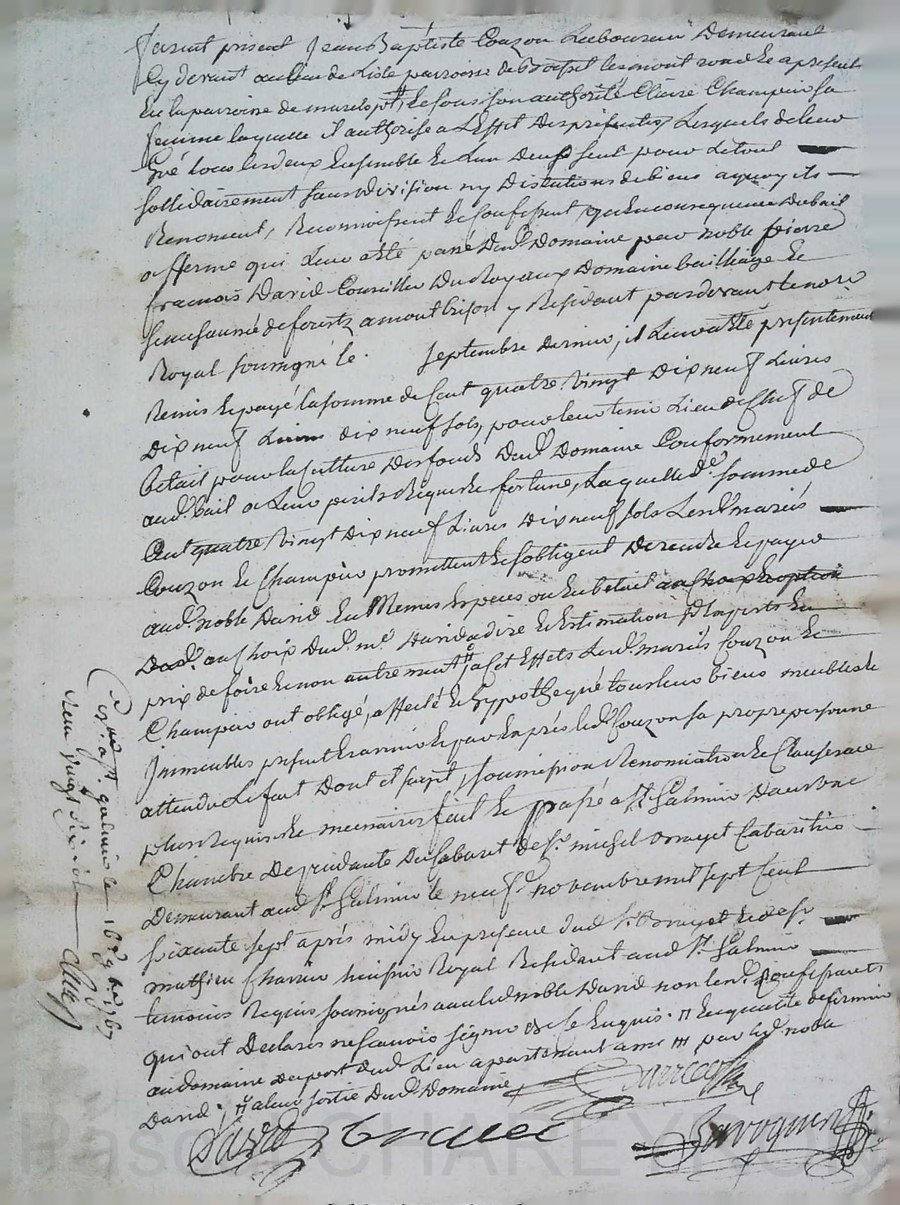 furent present Jean Baptiste Couzon Laboureur Demeurant
Cy devant au lieu de Liste parroisse de et a present
En la parroisse de marclopt et sous son authorité Claire Champier sa
femme laquelle il authorise a L'effet Des presentes Lesquels de leur
Gré tous les deux Ensemble et L'un Deux seul pour Le tout
sollidairement sans Division ny Distutions de biens a quoy ils
Renoncent, Reconnoissent et Confessent qu'En consequence du bail
a fferme qui Leur a été passé dud. Domaine par noble pierre
francois David Conseiller Du Roy aux Domaine bailliage et
senechaussée de forestz a montbrison y Residant pardevant le no.re
Royal soussigné le. septembre dernier, il Leur a été presentement
Remis et payé la somme de Cent quatre Vingt Dix neuf Livres
Dix neuf sols, pour leur tenir Lieu de Cheptz de
betail pour la Culture Des fonds Dud. Domaine Conformement
aud. bail a Leur perils Risque et fortune, Laquelle d. somme de
Cent quatre Vingt Dix neuf Livres Dix neuf sols Lesd. mariés
Couzon et Champier promettent et s'obligent De rendre et payer
aud. noble David En Memes Especes ou En betail au Choix et option
Dud. au Choix Dud. m.r David a dire et Estimation D'Experts En
prix de foire et non autrement a Cet Effets Lesd. mariés Couzon et
Champier ont obligé, affecté et hypothequé tous leur biens meubles et
Immeubles present et avenir et par Exprès led. Couzon sa propre personne
attendu Le fait Dont il s'agit, soumission Renonciation et Clauses au
plus Requis et necessaires fait et passé a St. Galmier Dans une
Chambre Dependante Du Cabaret de S.r michel Cabaretier
Demeurant aud St. Galmier le neuf.e novembre mil sept Cent
soixante sept après midy En presence dud. S.r et de S.r
mathieu Charrin huissier Royal Residant aud St. Galmier
temoins Requis soussignés avec led noble David non lesd. Confessants
qui ont Declarés ne scavoir signer de ce Enquis. En qualité de fermier
au domaine du port dud. Lieu apartenant par led. noble
David. a leur sortie Dud. Domaine
David
Con.lé a St. galmier le 16 9bre 1767
Reçu vingt six sols